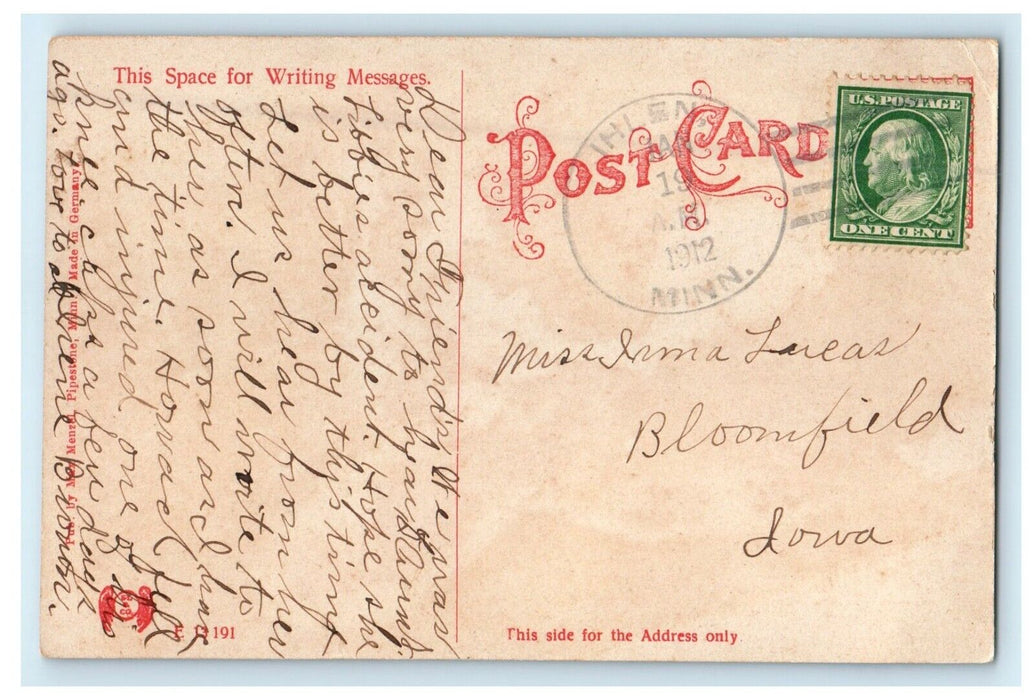 This Space for Writing Messages.
POST CARD
IHLEN,
MAR
19
1912
MINN.
U.S. POSTAGE
ONE CENT
Dear Friends, We was
very sorry to hear Aunt
Libbies accident. Hope she
is better by this time
Let us hear from her
often. I will write to
her as soon as I have
the time. Horrace fell
and injured one of his
knee caps a few days
ago. Love to all
Miss Irma Lucas
Bloomfield
Iowa
Pub. by Menzel, Pipestone, Minn. Made in Germany
E 14191
This side for the Address only